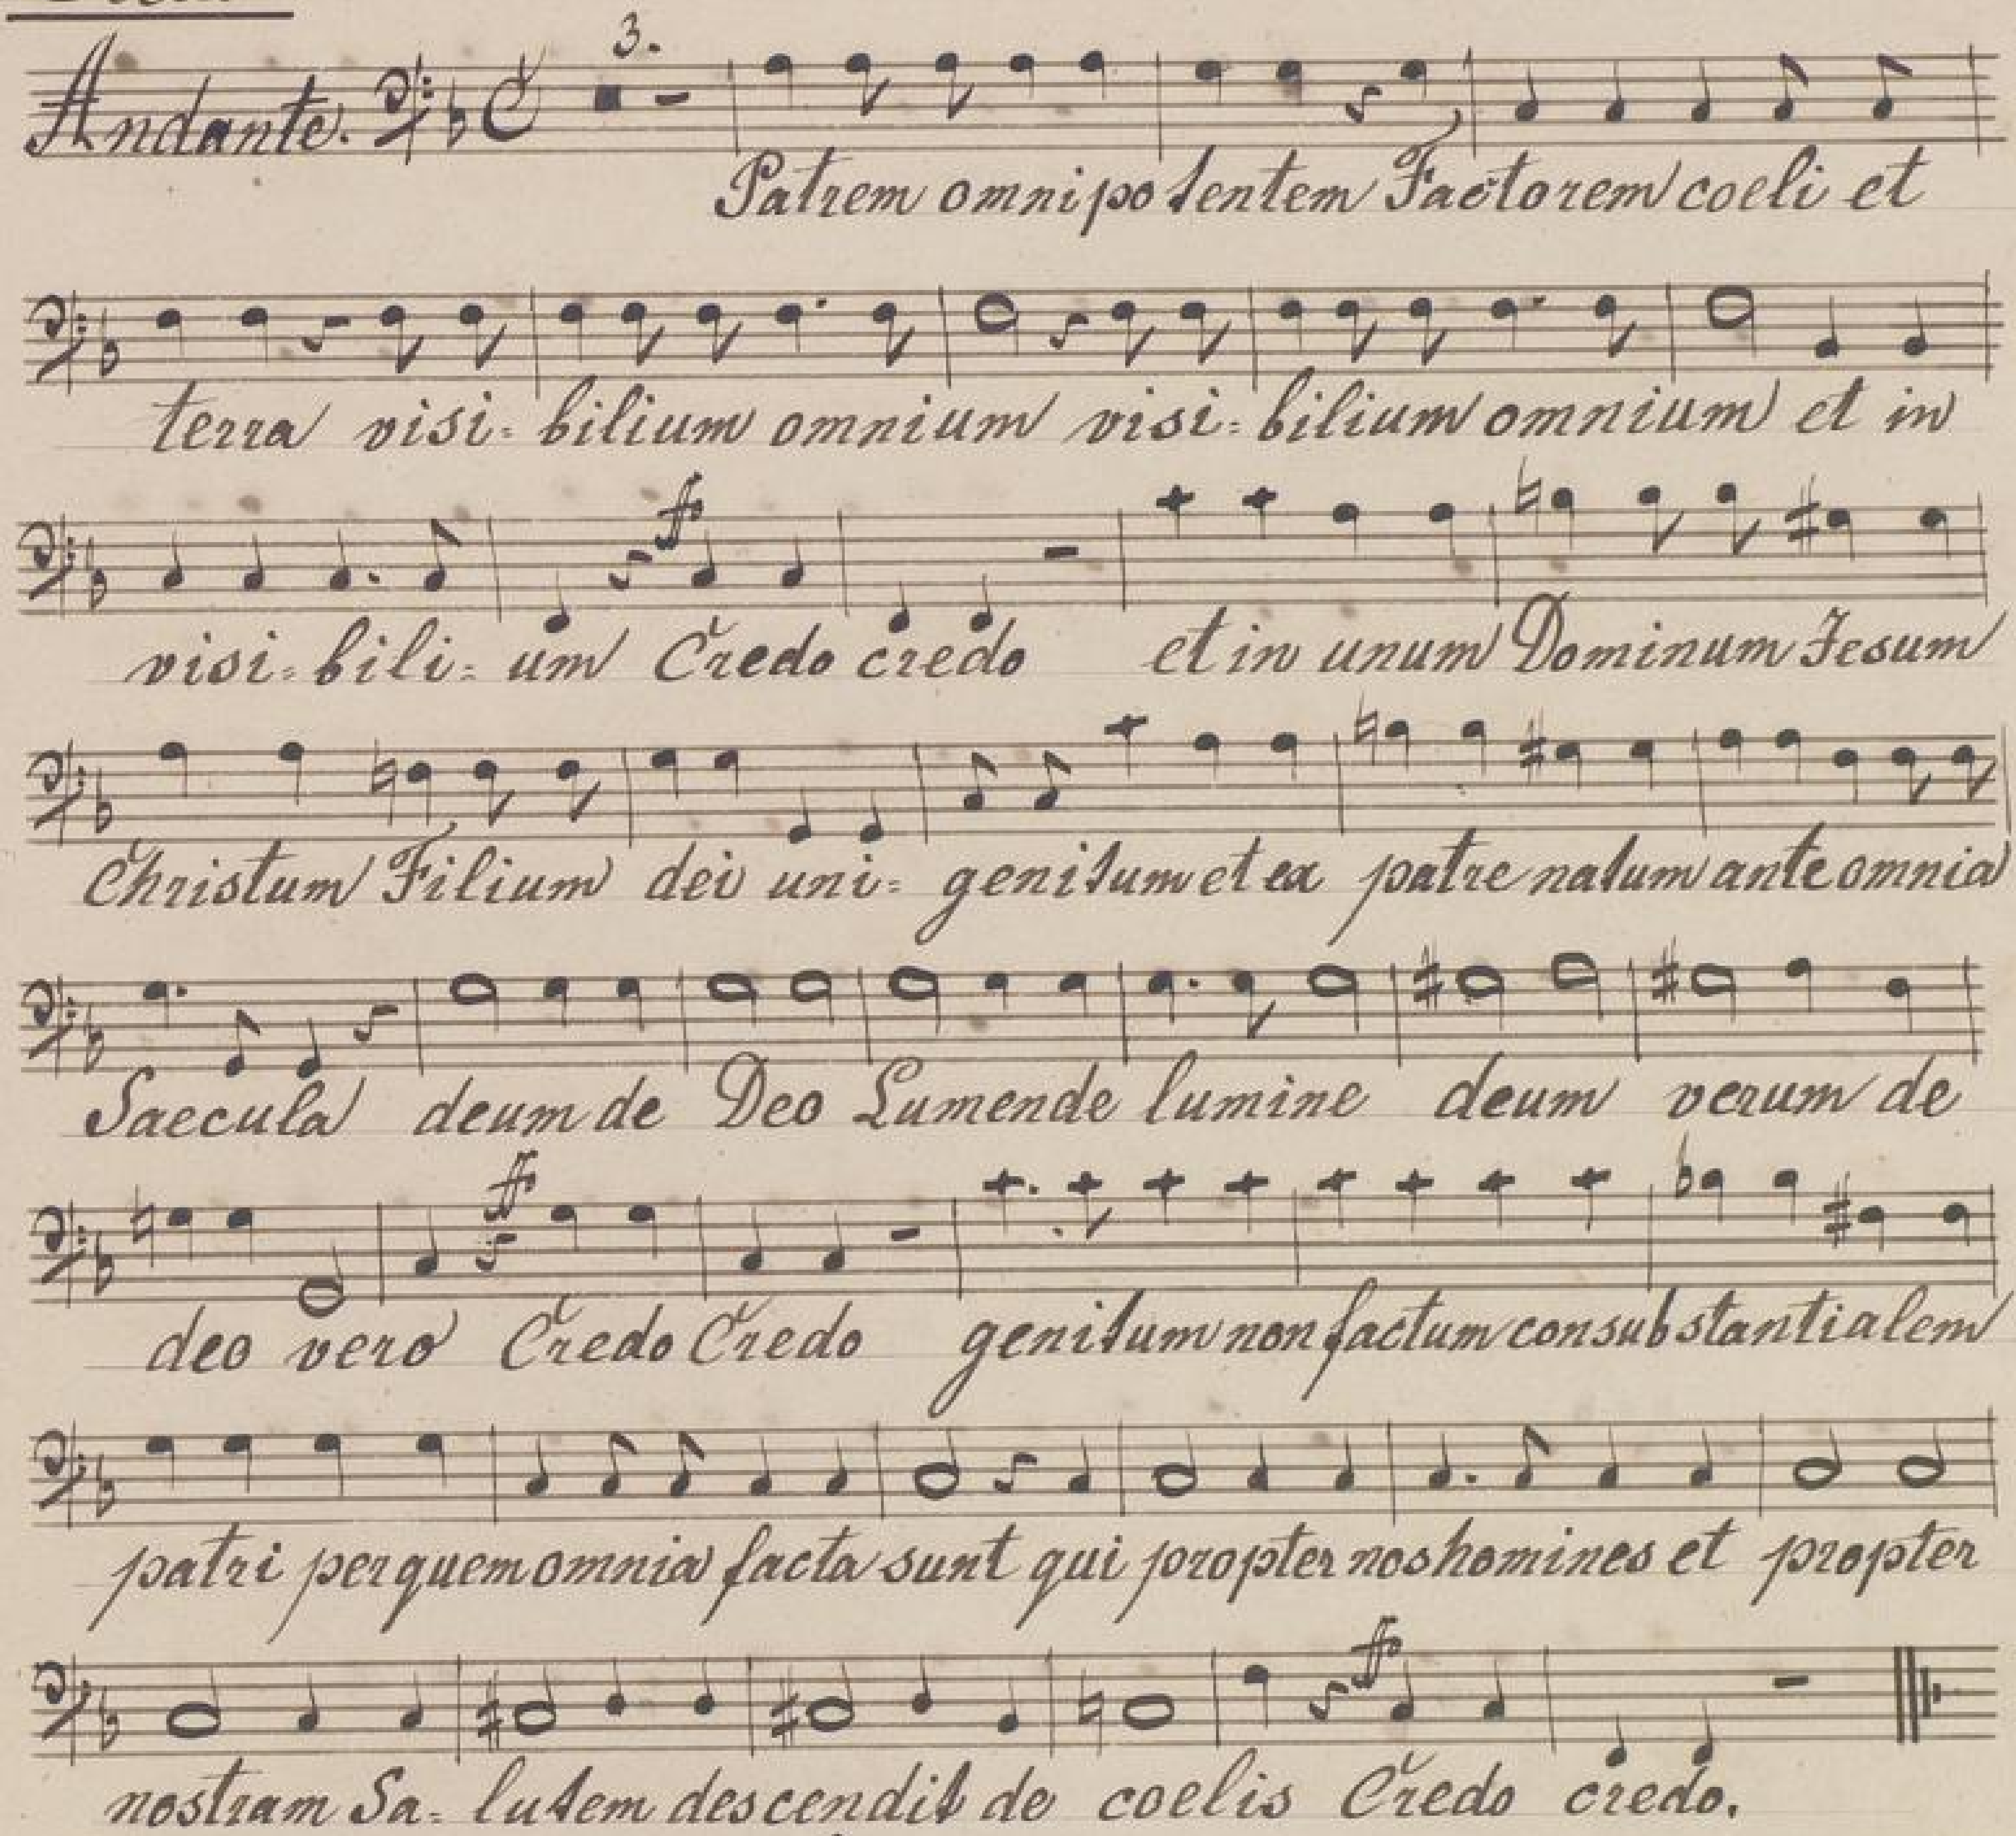 3.
Andante.
Patrem omnipotentem Factorem coeli et
terra visi= bilium omnium visi= bilium omnium et in
f
visi= bili= um Credo credo et in unum Dominum Jesum
Christum Filium dei uni= genitum et ex patre natum ante omnia
Saecula deum de Deo Lumen de lumine deum verum de
ff
deo vero Credo Credo genitum non factum consubstantialem
patri per quem omnia facta sunt qui propter nos homines et propter
f
nostram Sa= lutem descendit de coelis Credo credo.